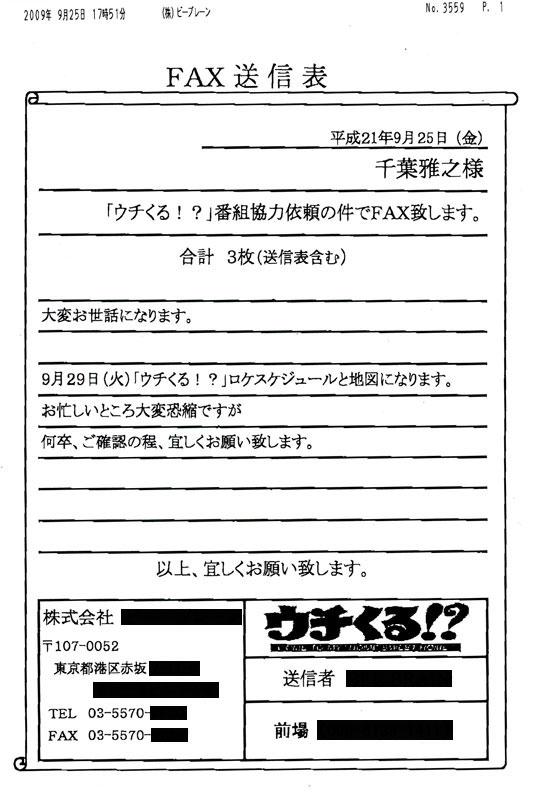 2009年 9月25日 17時51分 (株)ビーブレーン No.3559 P. 1
FAX 送信表
平成21年9月25日（金）
千葉雅之様
「ウチくる！？」番組協力依頼の件でFAX致します。
合計 3枚(送信表含む)
大変お世話になります。
9月29日(火)「ウチくる！？」ロケスケジュールと地図になります。
お忙しいところ大変恐縮ですが
何卒、ご確認の程、宜しくお願い致します。
以上、宜しくお願い致します。
株式会社
〒107-0052
東京都港区赤坂
TEL 03-5570-
FAX 03-5570-
ウチくる!?
送信者
前場